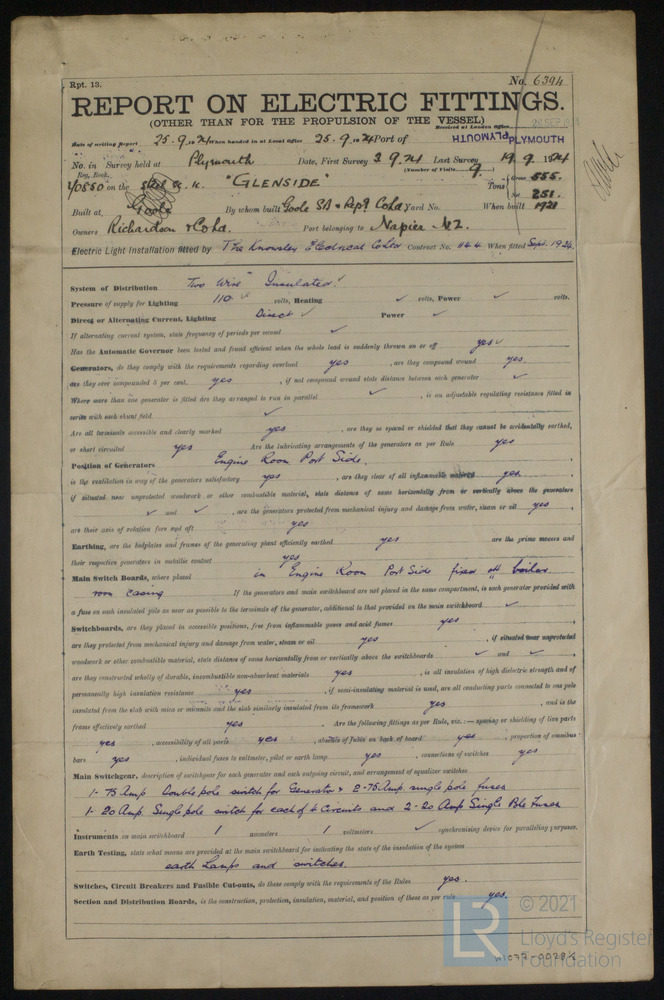 Rpt. 13.
No. 6394
REPORT ON ELECTRIC FITTINGS.
(OTHER THAN FOR THE PROPULSION OF THE VESSEL)
Received at London Office
Date of writing Report 25.9.1924 When handed in at Local Office 25.9.1924 Port of PLYMOUTH
No. in Survey held at Plymouth Date, First Survey 3.9.24 Last Survey 19.9.1924
Reg. Book. (Number of Visits 9.)
40550 on the "GLENSIDE" Tons Gross 555.
Net 251.
Built at Goole By whom built Goole SB & Repg Co Ld Yard No. When built 1921
Owners Richardson & Co Ld. Port belonging to Napier NZ.
Electric Light Installation fitted by The Knowsley Electrical Co Ltd Contract No. 1144 When fitted Sept. 1924
System of Distribution Two Wire Insulated.
Pressure of supply for Lighting 110 volts, Heating ✓ volts, Power ✓ volts.
Direct or Alternating Current, Lighting Direct ✓ Power ✓
If alternating current system, state frequency of periods per second ✓
Has the Automatic Governor been tested and found efficient when the whole load is suddenly thrown on or off yes ✓
Generators, do they comply with the requirements regarding overload yes , are they compound wound yes.
are they over compounded 5 per cent. yes , if not compound wound state distance between each generator ✓
Where more than one generator is fitted are they arranged to run in parallel ✓ , is an adjustable regulating resistance fitted in
series with each shunt field ✓
Are all terminals accessible and clearly marked yes , are they so spaced or shielded that they cannot be accidentally earthed,
or short circuited yes Are the lubricating arrangements of the generators as per Rule yes
Position of Generators Engine Room Port Side.
is the ventilation in way of the generators satisfactory yes , are they clear of all inflammable material yes
if situated near unprotected woodwork or other combustible material, state distance of same horizontally from or vertically above the generators
✓ and ✓ , are the generators protected from mechanical injury and damage from water, steam or oil yes
are their axis of rotation fore and aft yes
Earthing, are the bedplates and frames of the generating plant efficiently earthed yes are the prime movers and
their respective generators in metallic contact yes
Main Switch Boards, where placed in Engine Room Port Side fixed off boiler
room casing If the generators and main switchboard are not placed in the same compartment, is each generator provided with
a fuse on each insulated pole as near as possible to the terminals of the generator, additional to that provided on the main switchboard ✓
Switchboards, are they placed in accessible positions, free from inflammable gases and acid fumes yes
are they protected from mechanical injury and damage from water, steam or oil yes , if situated near unprotected
woodwork or other combustible material, state distance of same horizontally from or vertically above the switchboards ✓ and ✓
are they constructed wholly of durable, incombustible non-absorbent materials yes , is all insulation of high dielectric strength and of
permanently high insulation resistance yes , if semi-insulating material is used, are all conducting parts connected to one pole
insulated from the slab with mica or micanite and the slab similarly insulated from its framework yes , and is the
frame effectively earthed yes Are the following fittings as per Rule, viz.:— spacing or shielding of live parts
yes , accessibility of all parts yes , absence of fuses on back of board yes , proportion of omnibus
bars yes , individual fuses to voltmeter, pilot or earth lamp yes , connections of switches yes
Main Switchgear, description of switchgear for each generator and each outgoing circuit, and arrangement of equaliser switches
1- 75 Amp Double pole switch for Generator & 2-75 Amp single pole fuses
1- 20 Amp. Single pole switch for each of 4 Circuits and 2-20 Amp Single Pole Fuses
Instruments on main switchboard 1 ammeters 1 voltmeters ✓ synchronising device for paralleling purposes.
Earth Testing, state what means are provided at the main switchboard for indicating the state of the insulation of the system
earth Lamps and switches.
Switches, Circuit Breakers and Fusible Cut-outs, do these comply with the requirements of the Rules yes.
Section and Distribution Boards, is the construction, protection, insulation, material, and position of these as per rule yes.
LR
© 2021
Lloyd's Register
Foundation